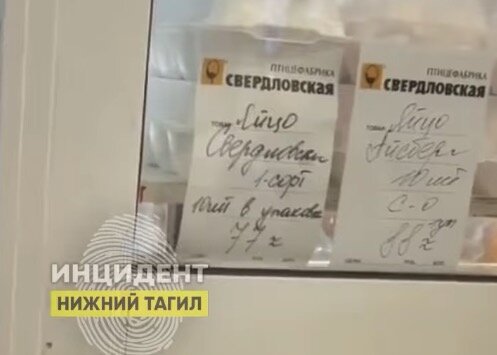 ПТИЦЕФАБРИКА
СВЕРДЛОВСКАЯ
ТОВАР Яйцо
Свердловск
1-сорт
10шт в упаковке
77 г
РУБ. КОП.
ПТИЦЕФАБРИКА
СВЕРДЛОВСКАЯ
ТОВАР Яйцо
Айсберг
10шт
С-0
88 г
ЦЕНА РУБ. КОП.
ИНЦИДЕНТ
НИЖНИЙ ТАГИЛ